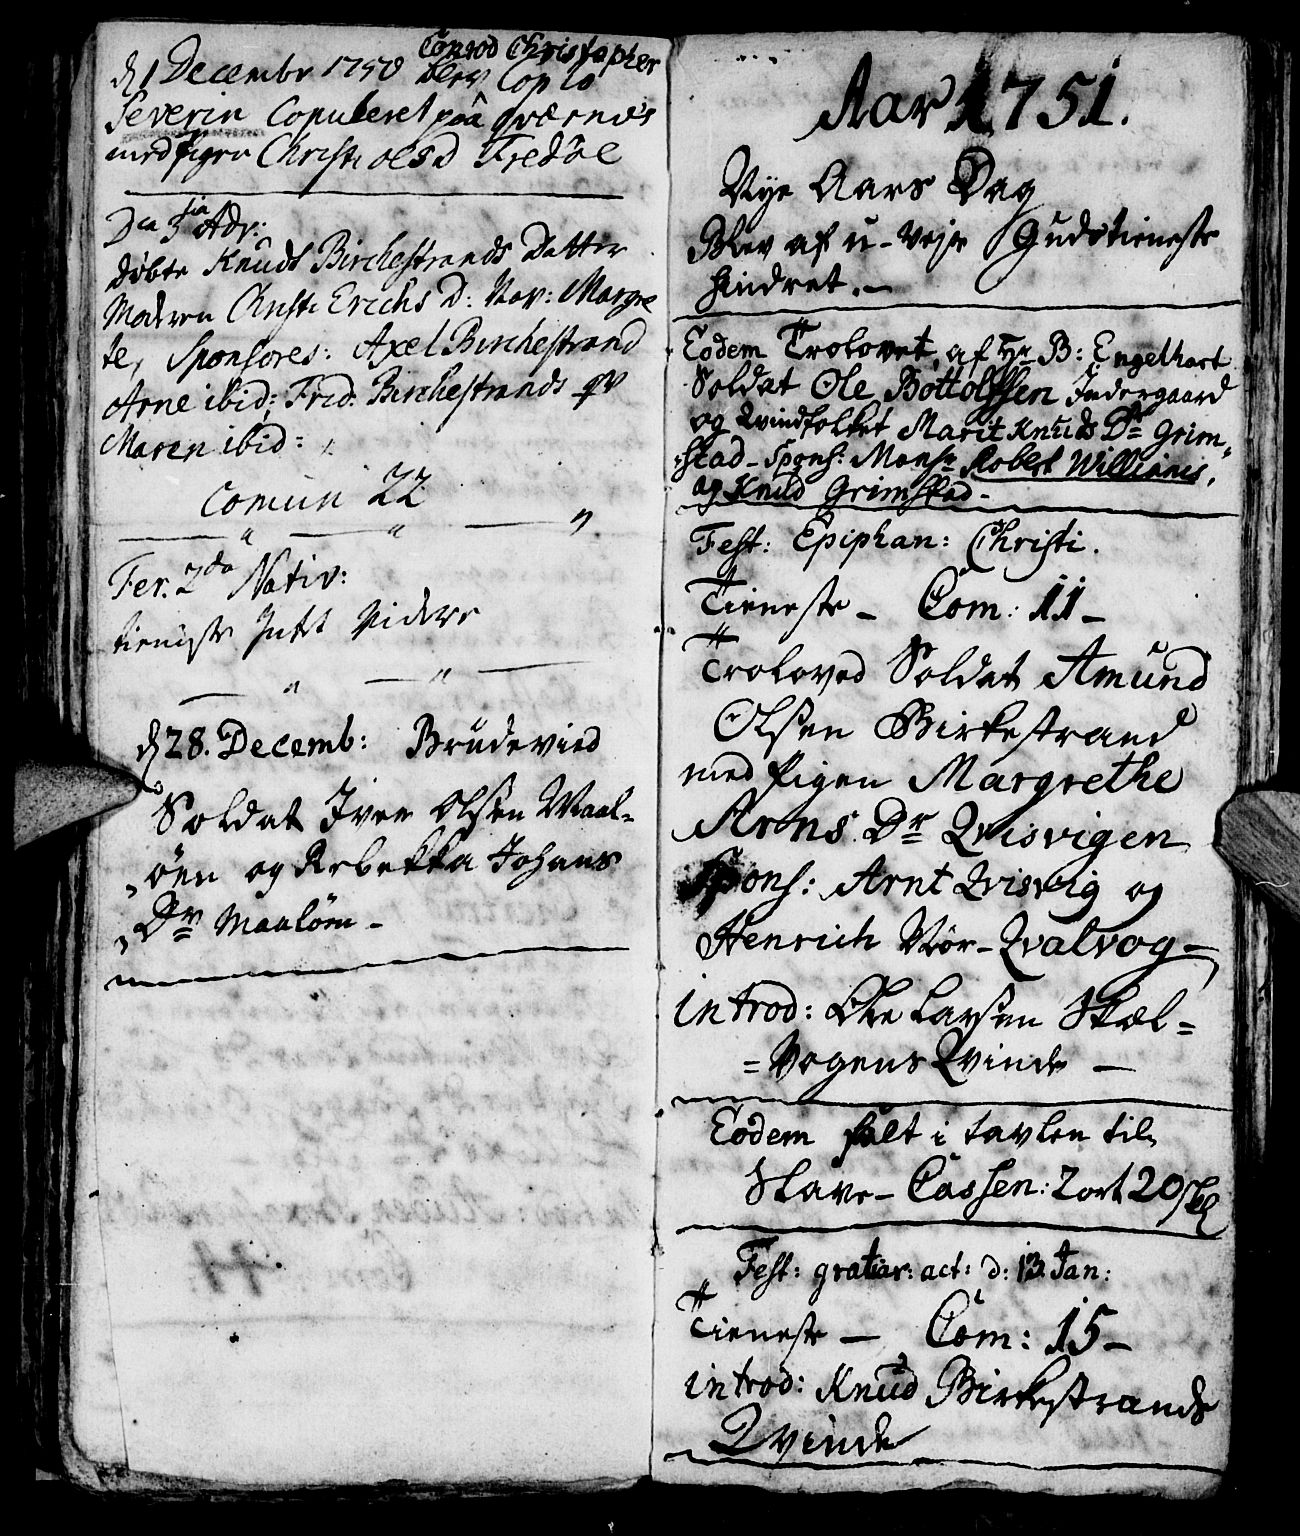 d 1 Decembr 1750 blev Cop lo
Conrod Christopher
Severin Copuleret paa qværnes
med pigen Christi olesd Fredøe
Dca 3tia Adv:
døbte Knuds Birchestrands Datter
Moderen Christi Erichs D: Nav: Margre
te, Sponsores: Axel Birchestrand
Arne ibid: Frid. Birchestrands qv
Maren ibid:
Comun 22
Fer. 2da Nativ:
tieniste Intet Videre
d 28. Decemb: Brudevied
Soldat Iver Olsen Maal-
öen og Rebekka Johans
Dr Maalöen -
Aar 1751.
Nye Aars Dag
Blev af u-Veje Gudstieneste
hindret. -
Eodem Trolovet af Hr B: Engelhart
Soldat Ole Bottolfsen Indergaard
og Qvindfolket Marit Knuds Dr Grim,,
stad - Spons: Monsr Robert Willianis,
og Knud Grimstad -
Fest: Epiphan: Christi.
Tieneste - Com: 11 -
Troloved Soldat Amund
Olsen Birkestrand
med Pigen Margrethe
Arns Dr Qvisvigen
Spons: Arnt Qvisvig og
Henrich Nör-Qvalvog -
introd: Ole Larsen Skæl=
=Vogens Qvinde -
Eodem falt i tavlen til
Slave- Cassen: 2 ort 20 skl
Fest: gratiar: act: d: 13 Jan:
Tieneste - Com: 15 -
introd: Knud Birkestrands
Qvinde